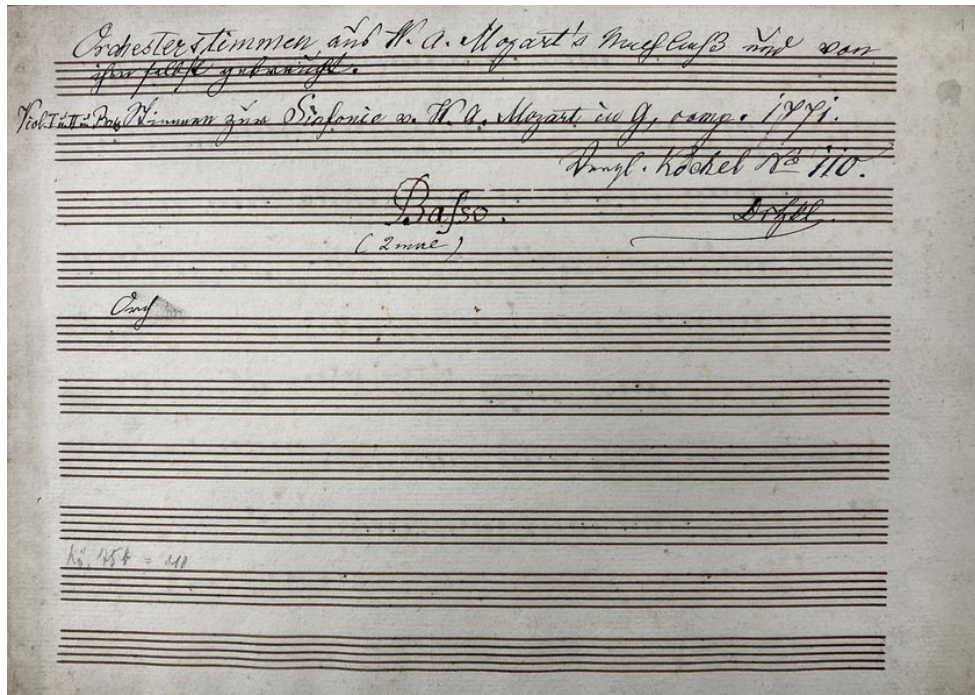 Orchesterstimmen aus W. A. Mozart's Nachlaß und von
ihm selbst gebraucht.
Viol. I u. II u. Bass Stimmen zur Sinfonie v. W. A. Mozart in G, comp. 1771.
Vergl. Köchel No 110.
Basso.
(2 mal)
Orch
Kö. 75b = 110